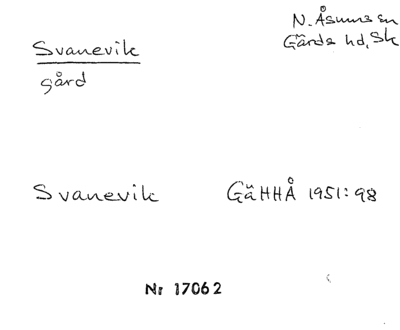 N. Åsums sn
Svanevik
Gärds hd, Sk
gård
Svanevik GäHHÅ 1951:98
Nr 17062